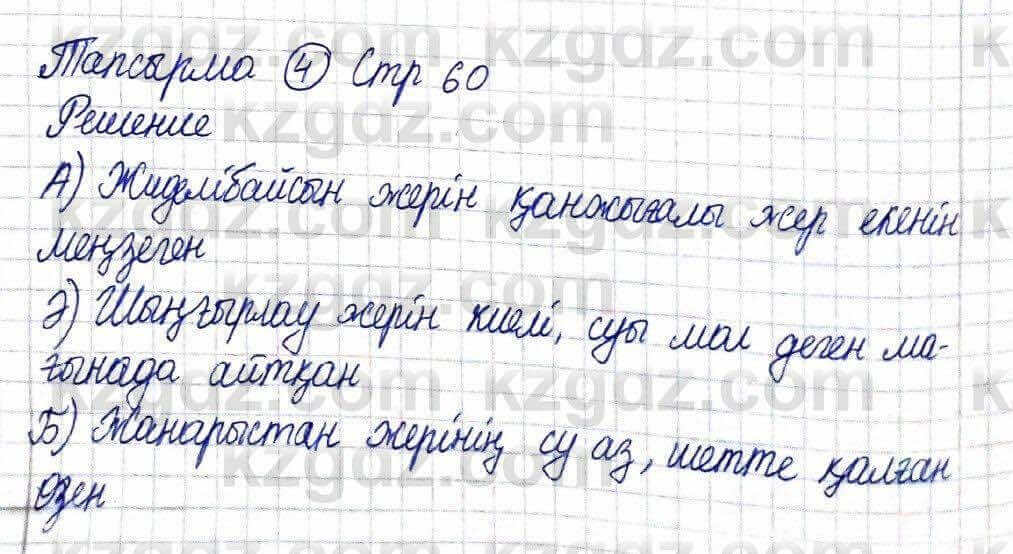 Тапсырма 4 Стр 60
Решение
А) Жиделібайсын жерін қанжығалы жер екенін
меңзеген
Ә) Шыңғырлау жерін киелі, суы мол деген ма-
ғынада айтқан
Б) Жанарыстан жерінің су аз, шетте қалған
өзен
kzgdz.com